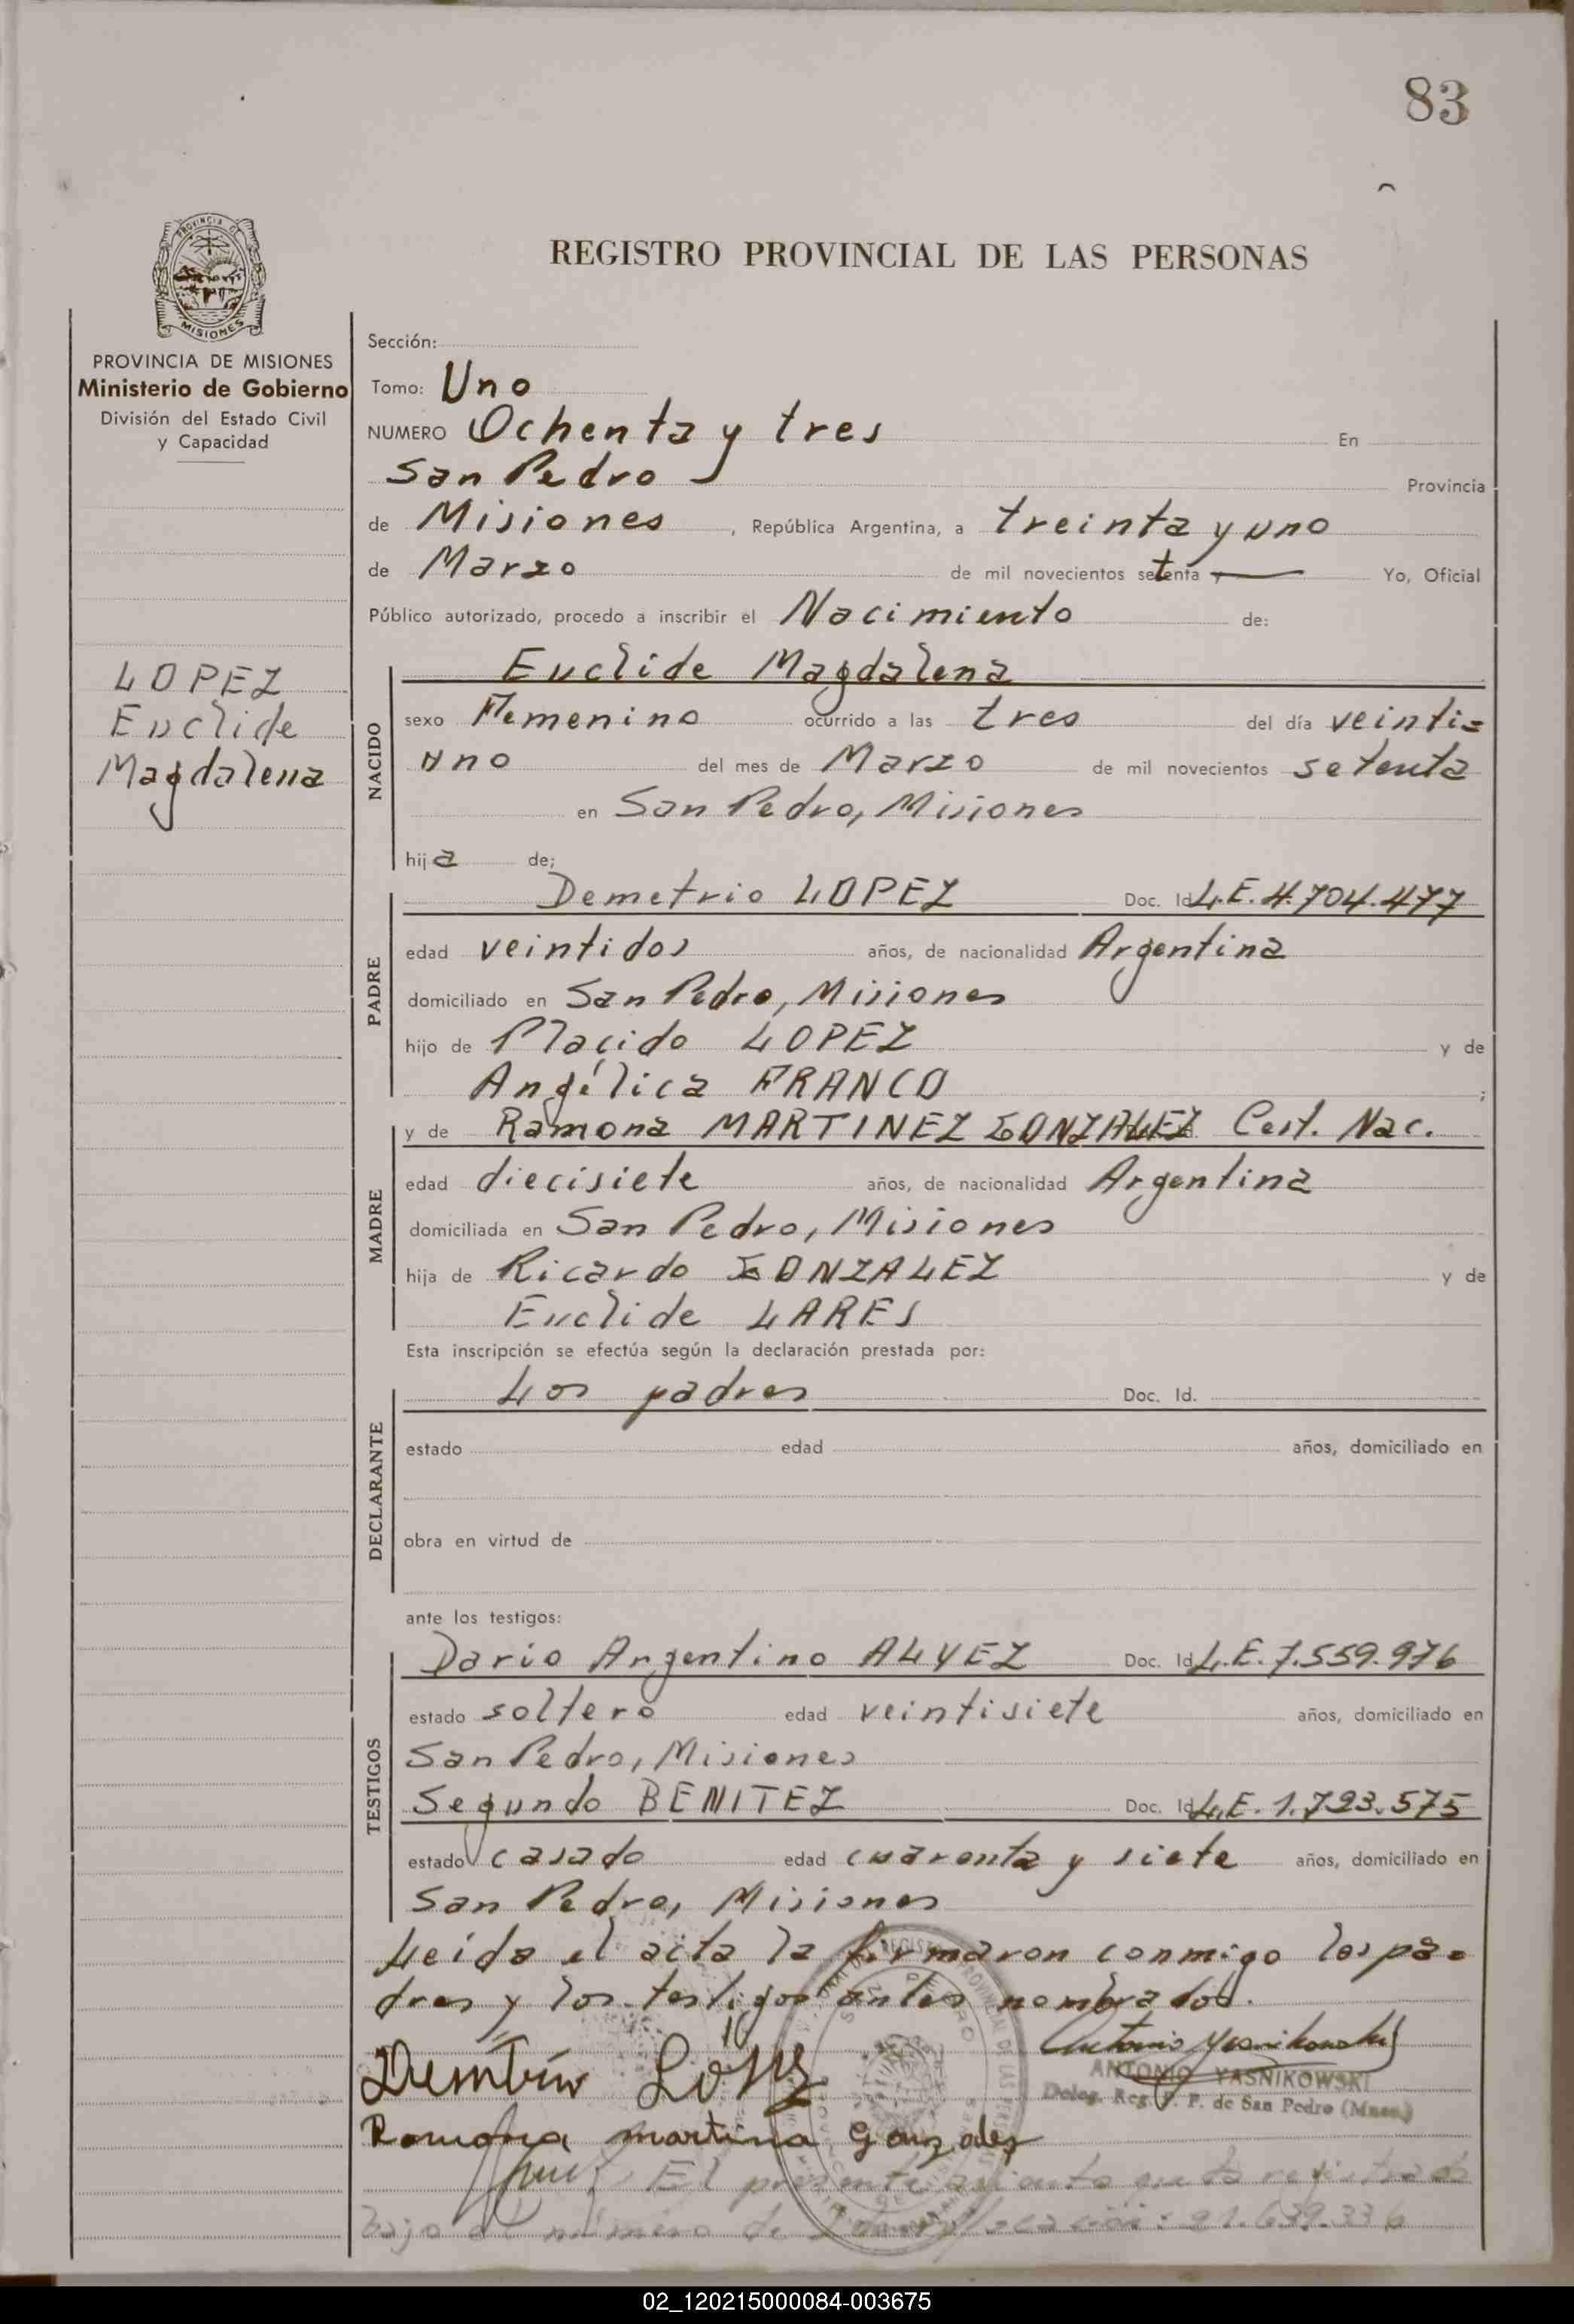 83
PROVINCIA DE
MISIONES
REGISTRO PROVINCIAL DE LAS PERSONAS
PROVINCIA DE MISIONES
Ministerio de Gobierno
División del Estado Civil
y Capacidad
LOPEZ
Euclide
Magdalena
Sección:
Tomo: Uno
NUMERO Ochenta y tres En
San Pedro Provincia
de Misiones, República Argentina, a treinta y uno
de Marzo de mil novecientos setenta y — Yo, Oficial
Público autorizado, procedo a inscribir el Nacimiento de:
NACIDO
Euclide Magdalena
sexo Femenino ocurrido a las tres del día veinti=
uno del mes de Marzo de mil novecientos setenta
en San Pedro, Misiones
hija de;
PADRE
Demetrio LOPEZ Doc. Id L.E. 4.704.477
edad veintidos años, de nacionalidad Argentina
domiciliado en San Pedro, Misiones
hijo de Placido LOPEZ y de
Angélica FRANCO ;
MADRE
y de Ramona MARTINEZ GONZALEZ Cert. Nac.
edad diecisiete años, de nacionalidad Argentina
domiciliada en San Pedro, Misiones
hija de Ricardo GONZALEZ y de
Euclide LARES
Esta inscripción se efectúa según la declaración prestada por:
DECLARANTE
Los padres Doc. Id.
estado edad años, domiciliado en
obra en virtud de
ante los testigos:
TESTIGOS
Dario Argentino ALVEZ Doc. Id L.E. 7.559.976
estado soltero edad veintisiete años, domiciliado en
San Pedro, Misiones
Segundo BENITEZ Doc. Id L.E. 1.793.575
estado casado edad cuarenta y siete años, domiciliado en
San Pedro, Misiones
Leída el acta la firmaron conmigo los pa=
dres y los testigos antes nombrados.
Antonio Yasnikowski
ANTONIO YASNIKOWSKI
Deleg. Reg. P. P. de San Pedro (Mnes.)
López
Ramona martina Gonzalez
El presente asiento queda registrado
bajo el número de 21.639.336
02_120215000084-003675